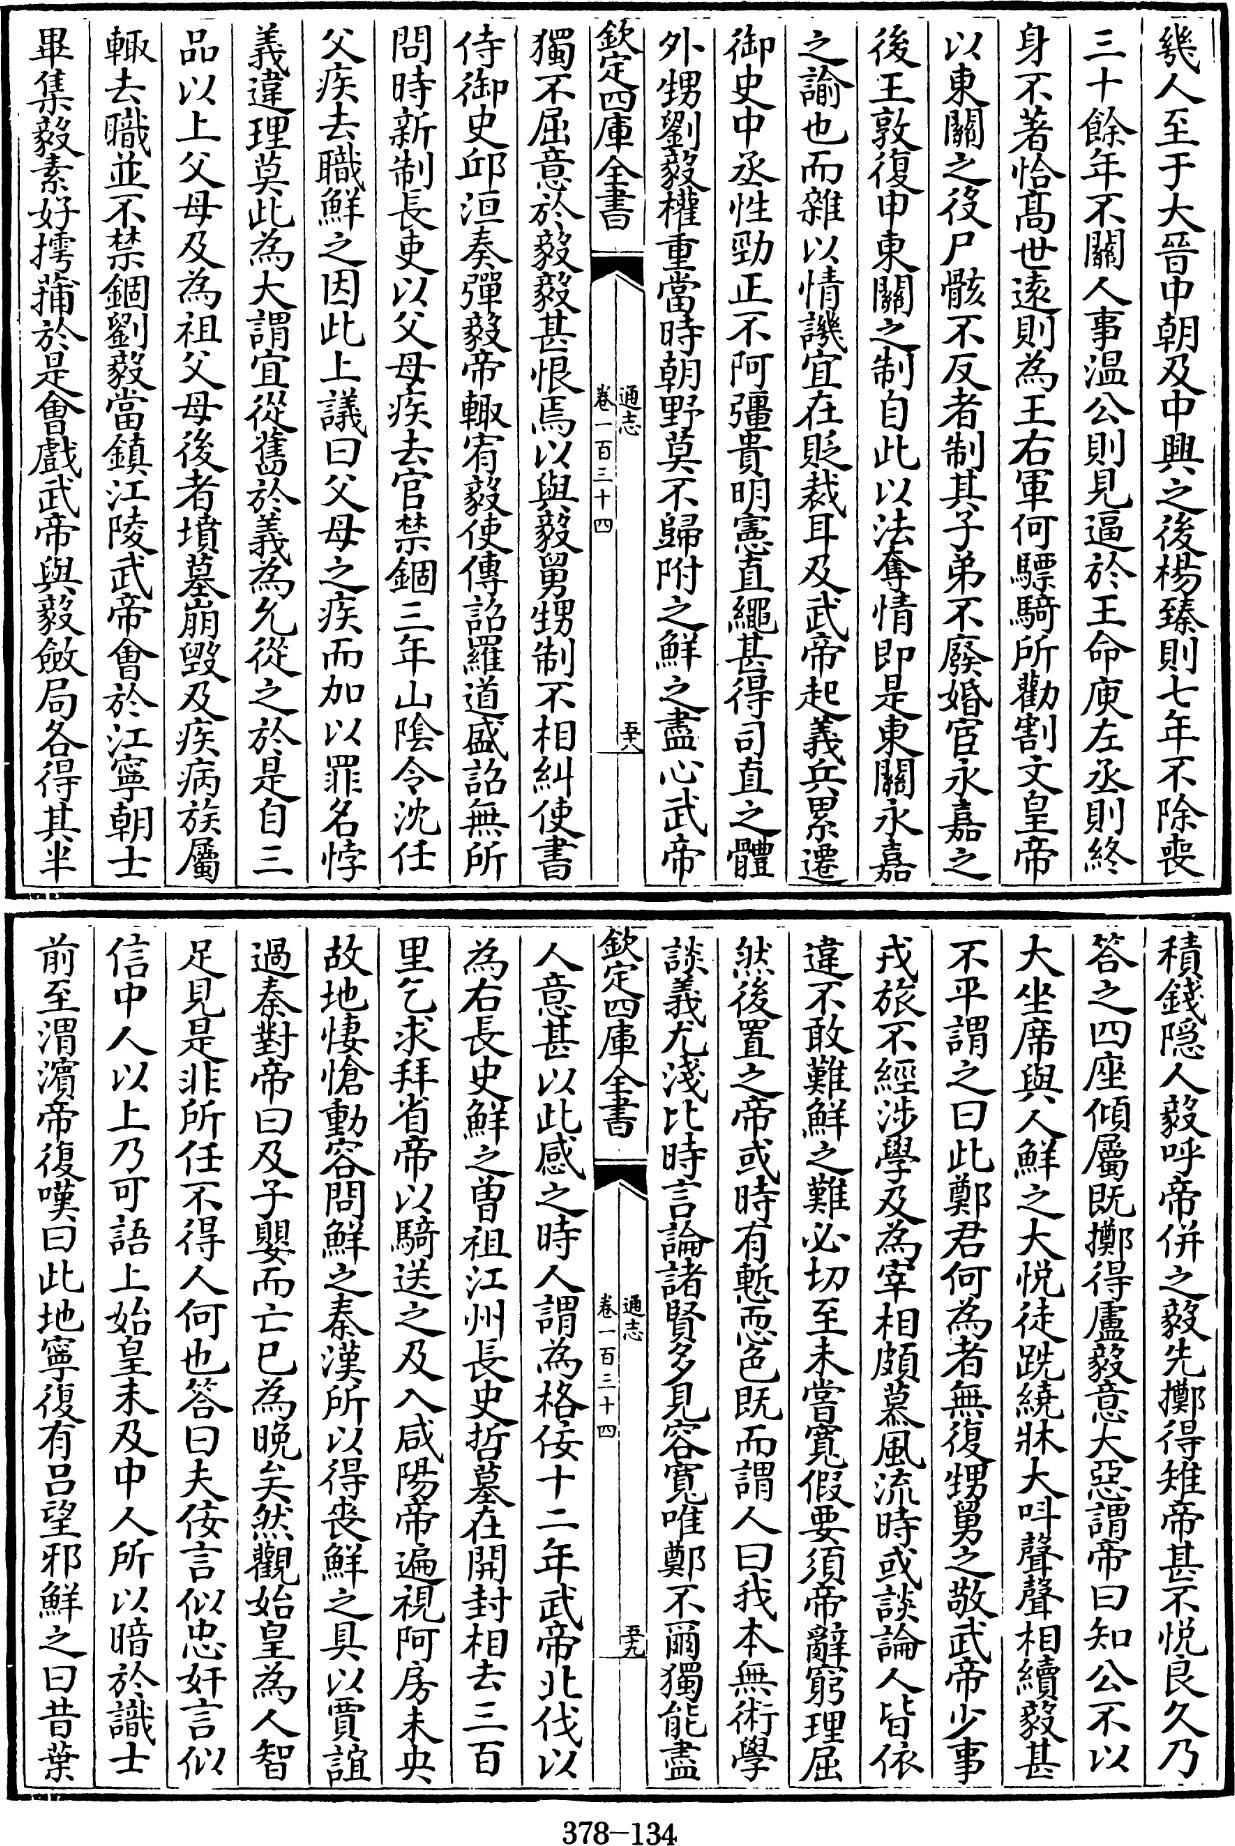 幾人至于大晉中朝及中興之後楊臻則七年不除喪
三十餘年不關人事温公則見逼於王命庾左丞則終
身不著袷髙世逺則為王右軍何驃騎所勸割文皇帝
以東關之役尸骸不反者制其子弟不廢婚宦永嘉之
後王敦復申東關之制自此以法奪情即是東關永嘉
之諭也而雜以情譏宜在貶裁耳及武帝起義兵累遷
御史中丞性勁正不阿彊貴明憲直繩甚得司直之體
外甥劉毅權重當時朝野莫不歸附之鮮之盡心武帝
欽定四庫全書
通志
卷一百三十四
五十八
獨不屈意於毅毅甚恨焉以與毅舅甥制不相糾使書
侍御史邱洹奏彈毅帝輙宥毅使傳詔羅道盛詔無所
問時新制長吏以父母疾去官禁錮三年山隂令沈任
父疾去職鮮之因此上議曰父母之疾而加以罪名悖
義違理莫此為大謂宜從舊於義為允從之於是自三
品以上父母及為祖父母後者墳墓崩毁及疾病族屬
輙去職並不禁錮劉毅當鎮江陵武帝㑹於江寧朝士
畢集毅素好摴蒱於是㑹戲武帝與毅斂局各得其半
積錢隠人毅呼帝併之毅先擲得雉帝甚不悦良久乃
答之四座傾屬既擲得盧毅意大惡謂帝曰知公不以
大坐席與人鮮之大悦徒跣繞牀大呌聲聲相續毅甚
不平謂之曰此鄭君何為者無復甥舅之敬武帝少事
戎旅不經涉學及為宰相頗慕風流時或談論人皆依
違不敢難鮮之難必切至未嘗寛假要須帝辭窮理屈
然後置之帝或時有慙恧色既而謂人曰我本無術學
談義尤淺比時言論諸賢多見容寛唯鄭不爾獨能盡
欽定四庫全書
通志
卷一百三十四
五十九
人意甚以此感之時人謂為格佞十二年武帝北伐以
為右長史鮮之曽祖江州長史哲墓在開封相去三百
里乞求拜省帝以騎送之及入咸陽帝遍視阿房未央
故地悽愴動容問鮮之秦漢所以得喪鮮之具以賈誼
過秦對帝曰及子嬰而亡已為晩矣然觀始皇為人智
足見是非所任不得人何也答曰夫佞言似忠奸言似
信中人以上乃可語上始皇未及中人所以暗於識士
前至渭濵帝復嘆曰此地寧復有吕望邪鮮之曰昔葉
378-134